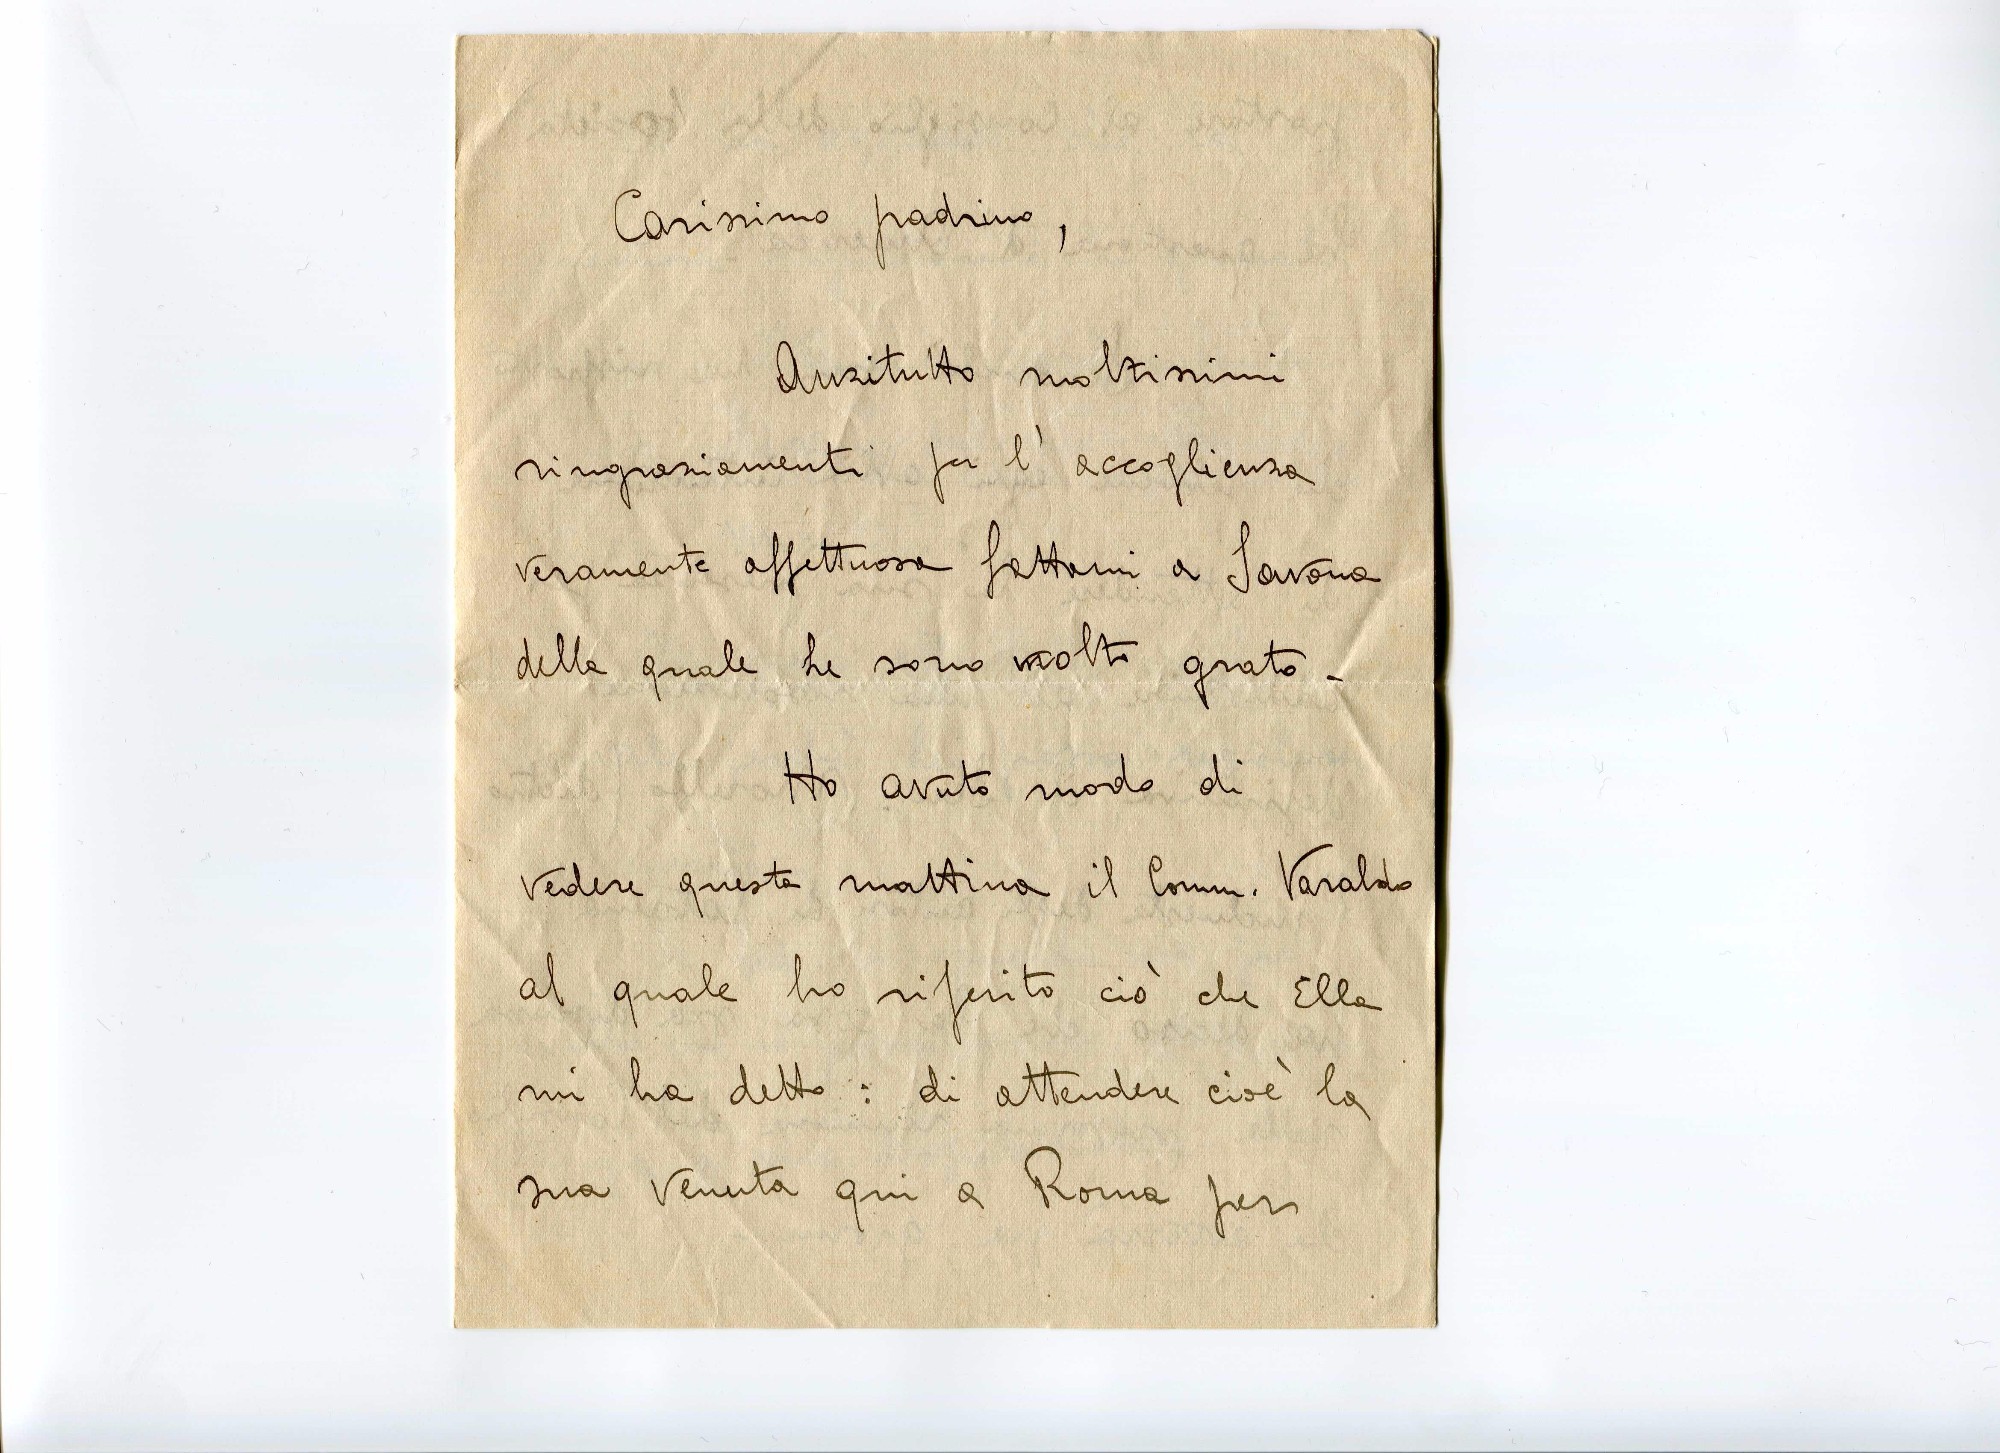 Carissimo padrino,
Anzitutto moltissimi
ringraziamenti per l'accoglienza
veramente affettuosa fattami a Savona
della quale Le sono molto grato -
Ho avuto modo di
vedere questa mattina il Comm. Varaldo
al quale ho riferito ciò che Ella
mi ha detto: di attendere cioè la
sua venuta qui a Roma per